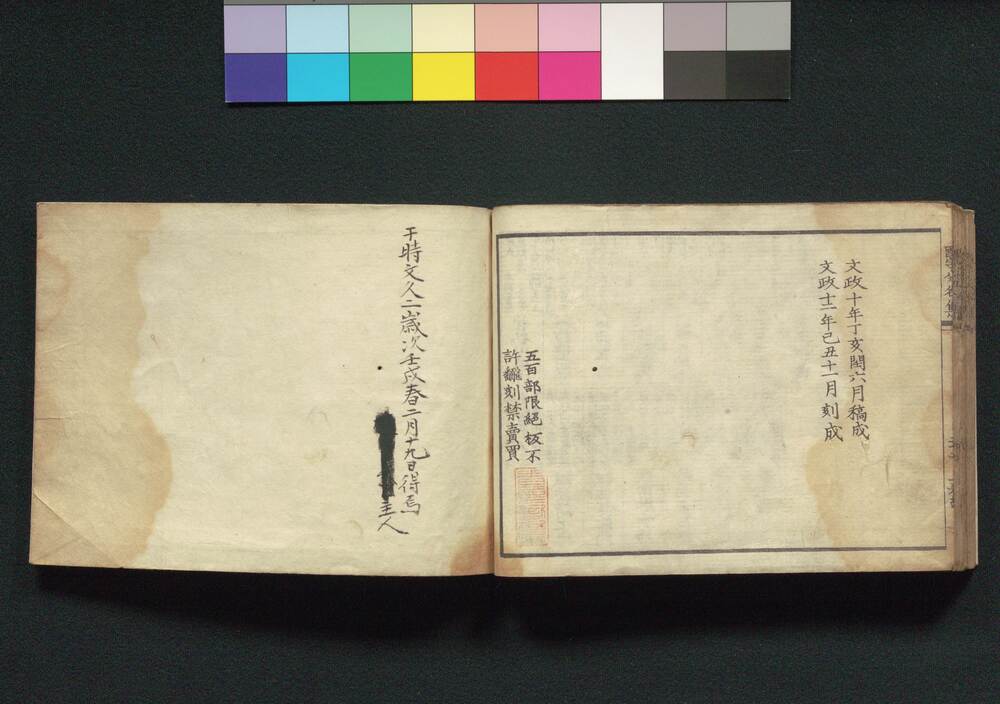 文政十年丁亥閏六月稿成
文政十二年己丑十一月刻成
五百部限絕板不
許飜刻禁賣買
干時文久二歳次壬戌春二月十九日得焉
主人